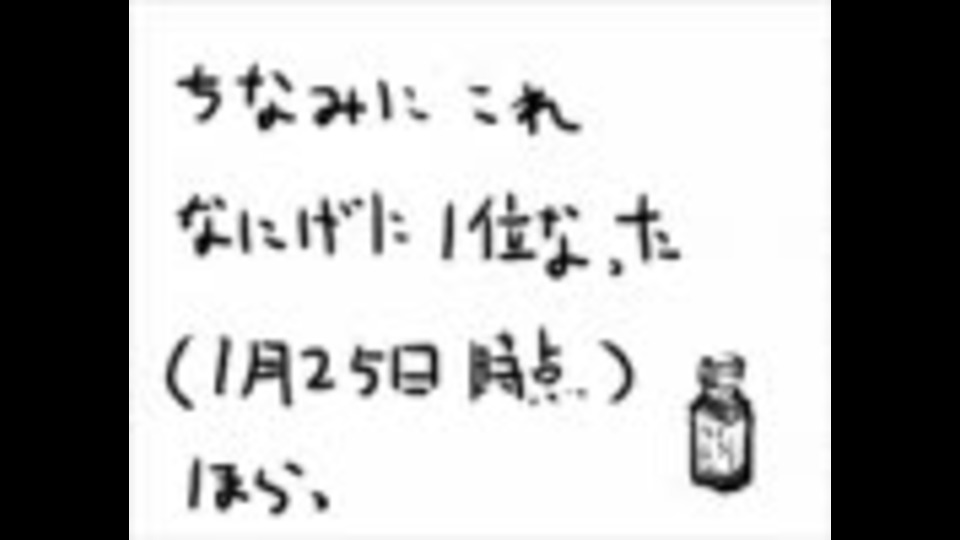 ちなみに これ
なにげに 1位なった
(1月25日 時点)
ほら、